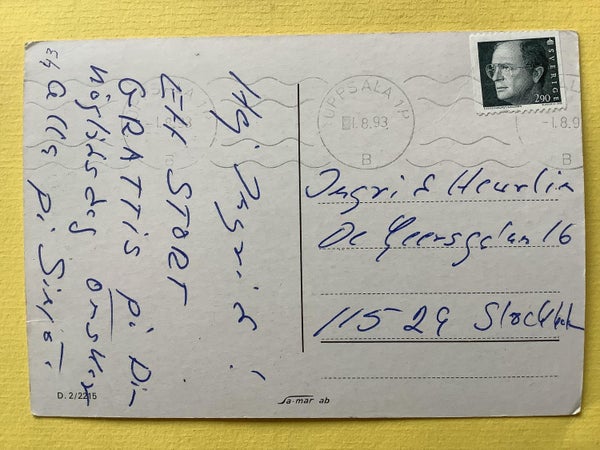 Hej Ingrid!
Ett STORT
GRATTIS på Din
högtidsdag önskar
alla på
SVERIGE
290
UPPSALA 1P
1.8.93
B
-1.8.9
B
Ingrid Heurlin
De Geersgatan 16
115 29 Stockholm
D. 2/2215
Sa-mar ab